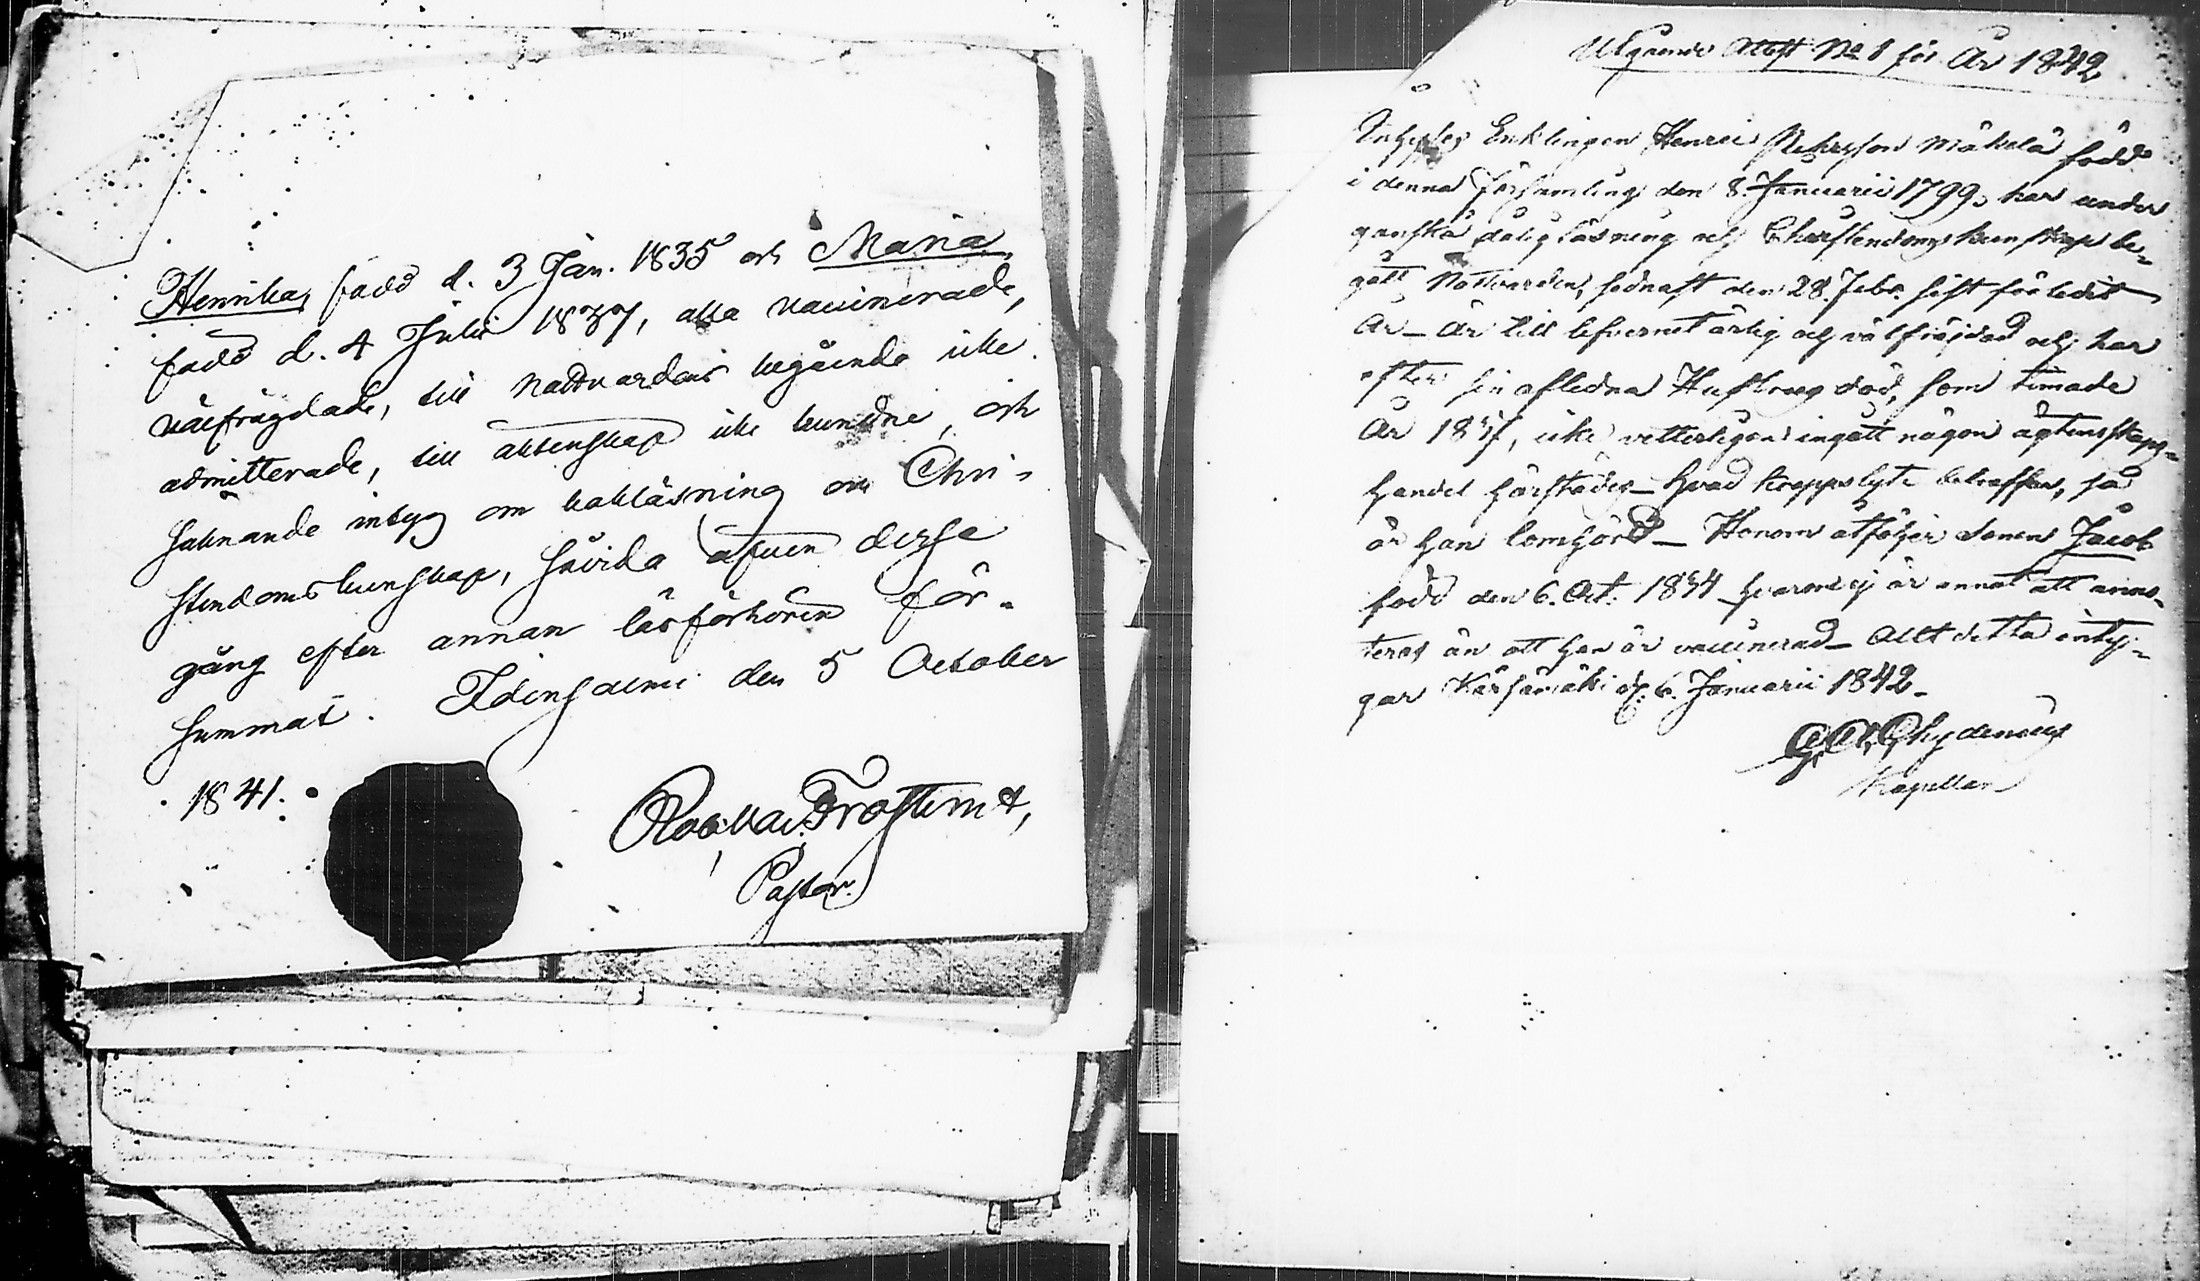 Henrika, född d. 3 Jan. 1835 och Maria,
född d. 4 Julii 1837, alla vaccinerade,
välfrägdade, till Nattvardens begående icke
admitterade, till äktenskap icke bundne, och
saknande intyg om bokläsning och Chri-
stendomskunskap, såvida äfven desse
gång efter annan läsförhören för-
summat. Idensalmi den 5 October
1841.
Frosterus,
Pastor.
Utgående Attest No 1 för År 1842
Inhyses Enklingen Henric Mäkelä född
i denna församling den 8 Januarii 1799, har under
ganska dålig läsning och Christendoms kunskap be-
gått Nattvarden, sednast den 28. Febr. sist förledit
År – är till lefvernet ärlig och välfräjdad och har
efter sin aflidna Hustrus död, som timade
År, icke vetterligen ingått någon ägtenskaps-
handel härstädes – hvad kroppslyte beträffar, så
är han lomhörd – Honom åtföljer sonen Jacob
född den 6. Oct. 1834 hvarom ej är annat att anno-
teras än att han är vaccinerad – Allt detta inty-
gar Kärsämäki d. 6. Januarii 1842 –
Chydenius
Kapellan